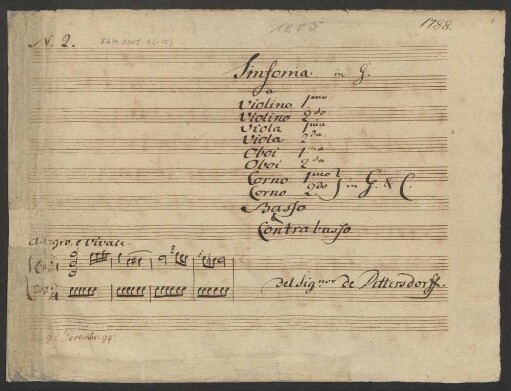 1005
1788.
N. 2.
Sinfonia. in G.
a
Violino 1mo
Violino 2do
Viola 1ma
Viola 2da
Oboi 1mo
Oboi 2do
Corno 1mo
Corno 2do } in G. & C.
Basso
&
Contrabasso.
Allegro, e Vivace.
del Signor de Dittersdorff.
Novembr. 94.